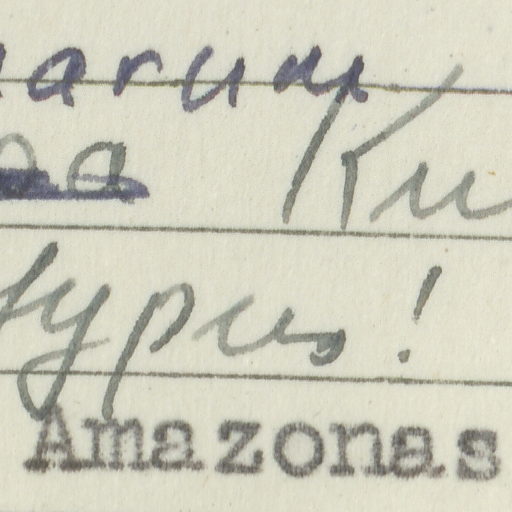 arum
Ku
typus!
Amazonas